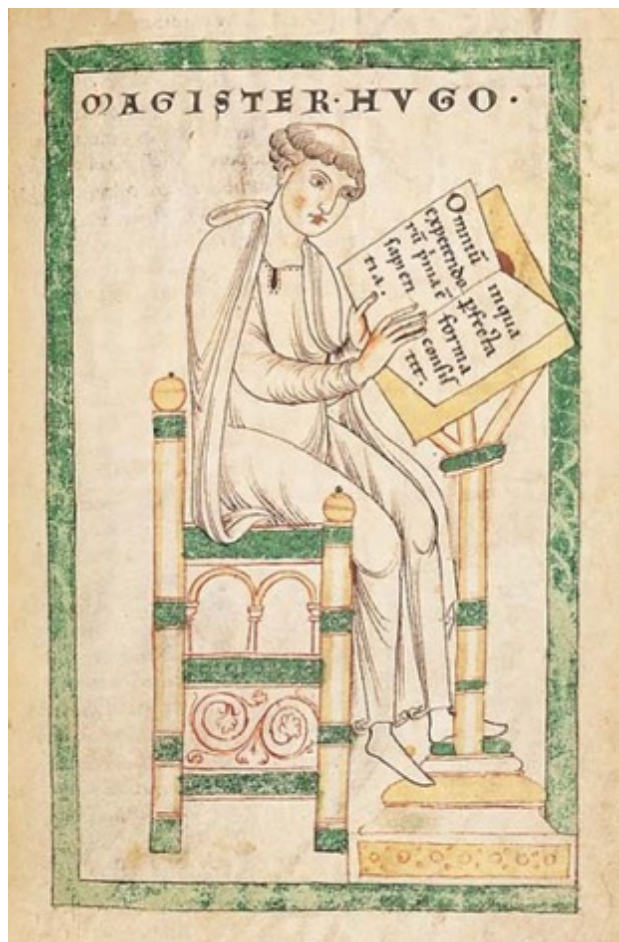 MAGISTER·HVGO·
Omniū
expetendo
rū p̄ma ē
sapien
tia.
inqua
ꝑfecta
forma
consis
tit.